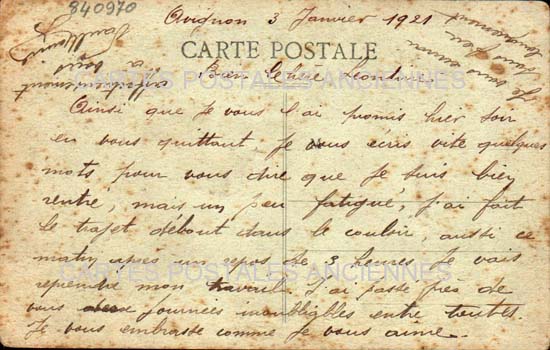 840970
Avignon 3 Janvier 1921
CARTE POSTALE
Bien Chère Léontine
CARTES POSTALES ANCIENNES
Ainsi que je vous l'ai promis hier soir
en vous quittant je vous écris vite quelques
mots pour vous dire que je suis bien
rentré, mais un peu fatigué, j'ai fait
le trajet debout dans le couloir, aussi ce
matin après un repos de 3 heures je vais
CARTES POSTALES ANCIENNES
reprendre mon travail. J'ai passé près de
vous deux journées inoubliables entre toutes.
Je vous embrasse comme je vous aime.